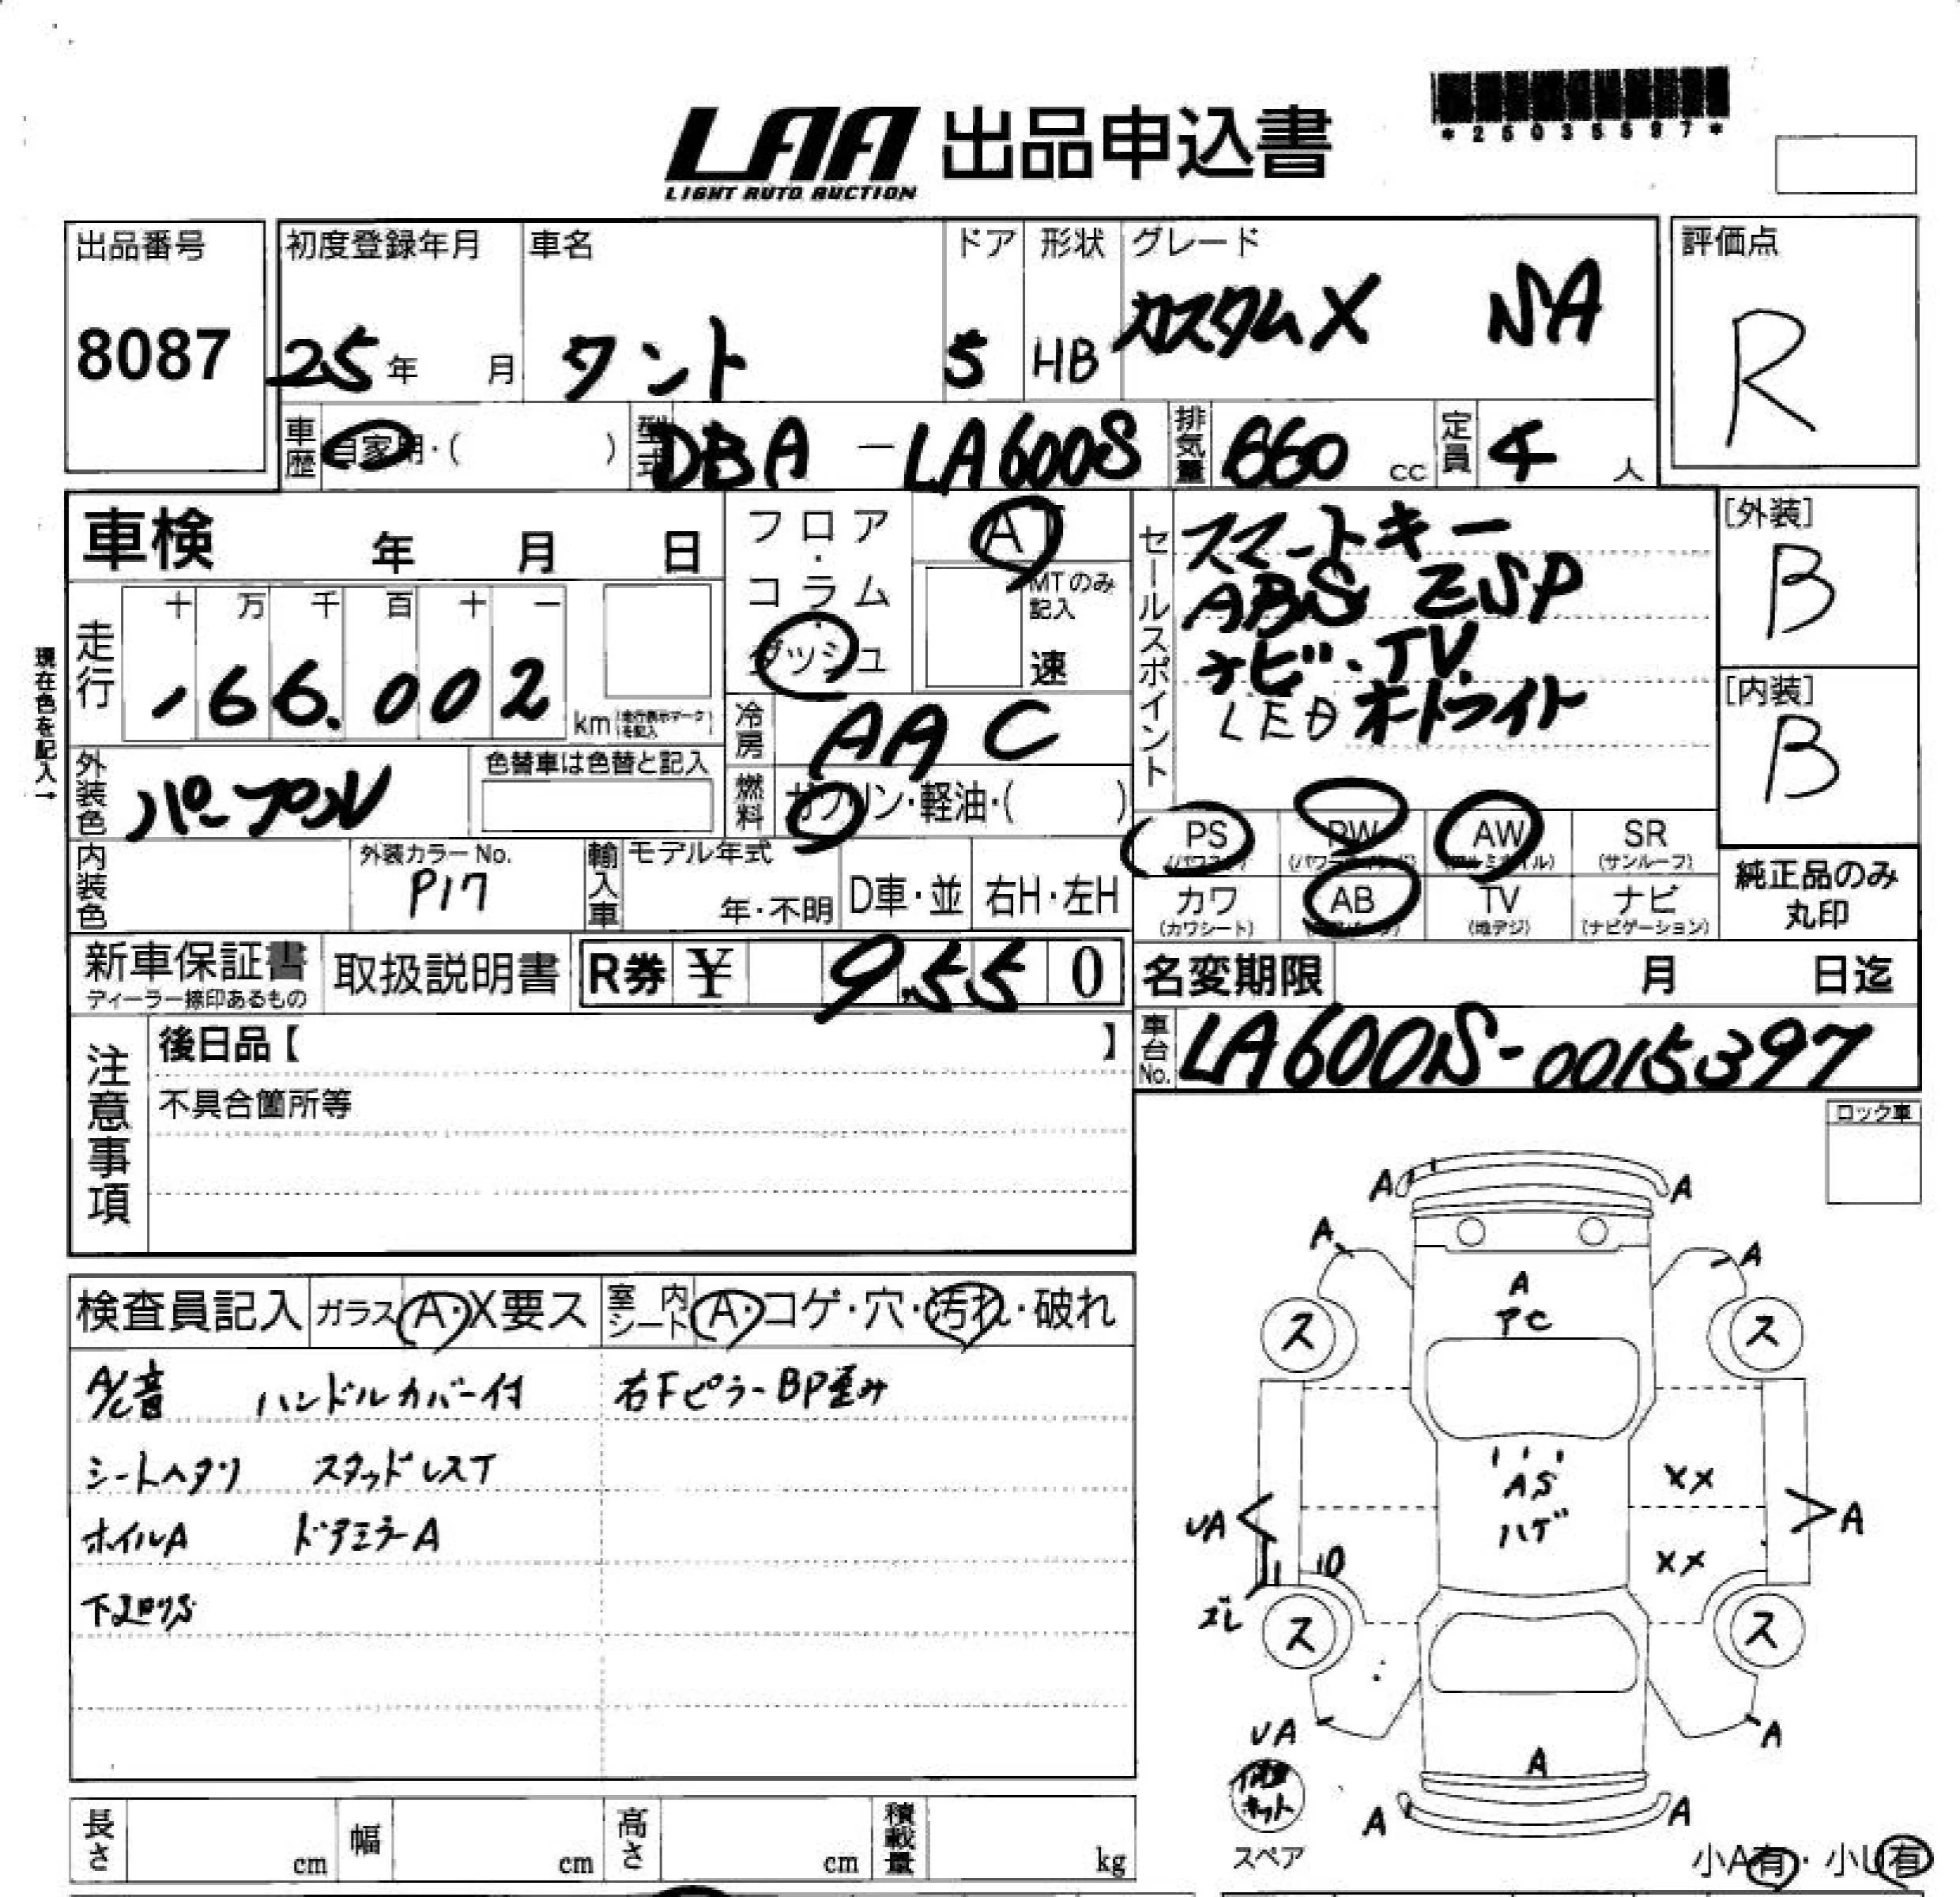 LAA 出品申込書
LIGHT AUTO AUCTION
*25035597*
出品番号 初度登録年月 車名 ドア 形状 グレード 評価点
8087 25年 月 タント 5 HB カスタムX SA R
車歴 自家用・( ) 型式 DBA-LA600S 排気量 660 cc 定員 4 人
車検 年 月 日
フロア・コラム・ダッシュ
AT
MTのみ記入
速
セールスポイント
スマートキー
ABS ESP
ナビ・TV
LED オートライト
[外装]
B
[内装]
B
現在色を記入→
走行 十 万 千 百 十 一
166.002 km
冷房 AAC
外装色 パープル 色替車は色替と記入
燃料 ガソリン・軽油・( )
PS PW AW SR
(サンルーフ)
内装色 外装カラーNo. P17 輸入車 モデル年式 年・不明 D車・並 右H・左H
カワ AB TV ナビ
(カワシート) (エアバック) (地デジ) (ナビゲーション)
純正品のみ
丸印
新車保証書 取扱説明書 R券 ¥ 9,550 名変期限 月 日迄
ディーラー捺印あるもの
車台No. LA600S-0015397
注意事項
後日品【 】
不具合箇所等
ロック車
検査員記入 ガラス A・X要ス 室内シート A・コゲ・穴・汚れ・破れ
A/C音 ハンドルカバー付 右Fピラー BP歪み
シートヘタリ スタッドレスT
ホイルA ドアミラーA
下廻りS
A A
A A
A
PC
ス ス
AS
ハゲ
XX
UA A
10 XX
ズレ
ス ス
UA A
A
A A
修理キット
スペア
小A有・小U有
長さ cm 幅 cm 高さ cm 積載量 kg